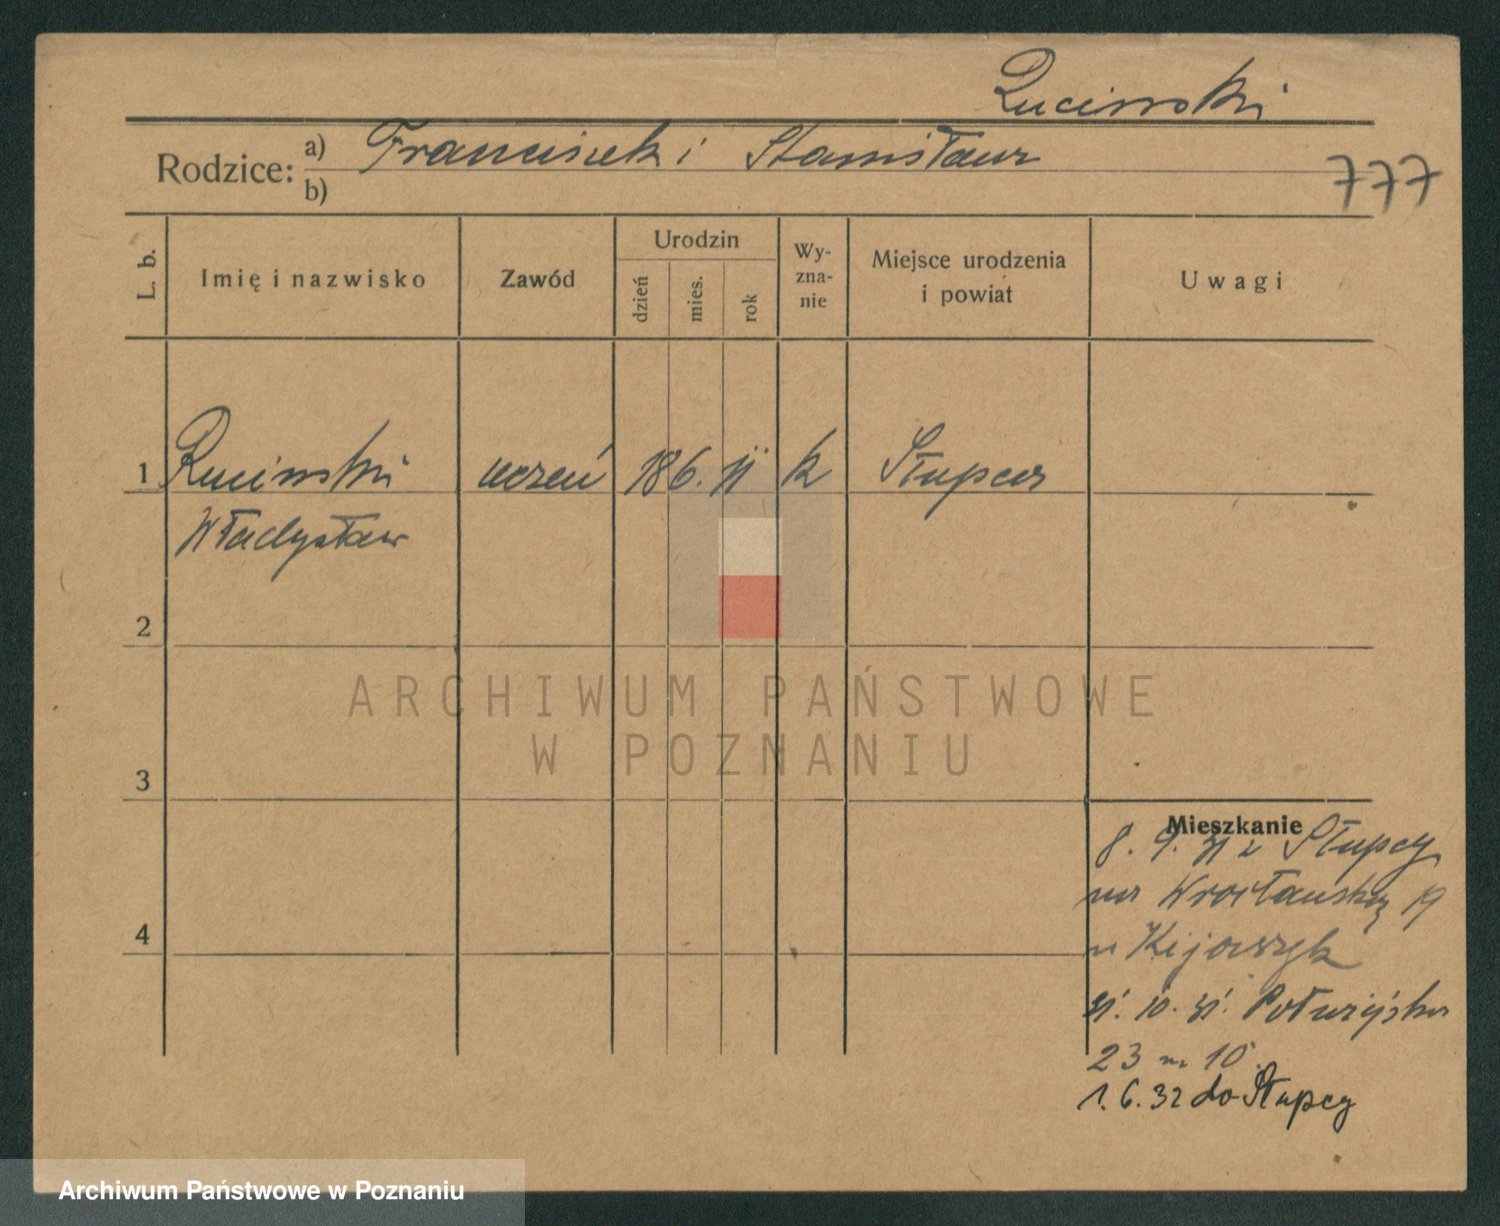 Ruciński
Rodzice: a) Franciszek i Stanisława
b)
777
L. b.
Imię i nazwisko
Zawód
Urodzin
dzień
mies.
rok
Wy-
zna-
nie
Miejsce urodzenia
i powiat
Uwagi
1 Ruciński uczeń 18 6. k Słupca
Władysław
2
3
4
Mieszkanie
8. 9. 31 z Słupcy
na Wrocławską 19
u
31. 10. 31. Półwiejska
23 m. 10
1. 6. 32 do Słupcy
ARCHIWUM PAŃSTWOWE
W POZNANIU
Archiwum Państwowe w Poznaniu